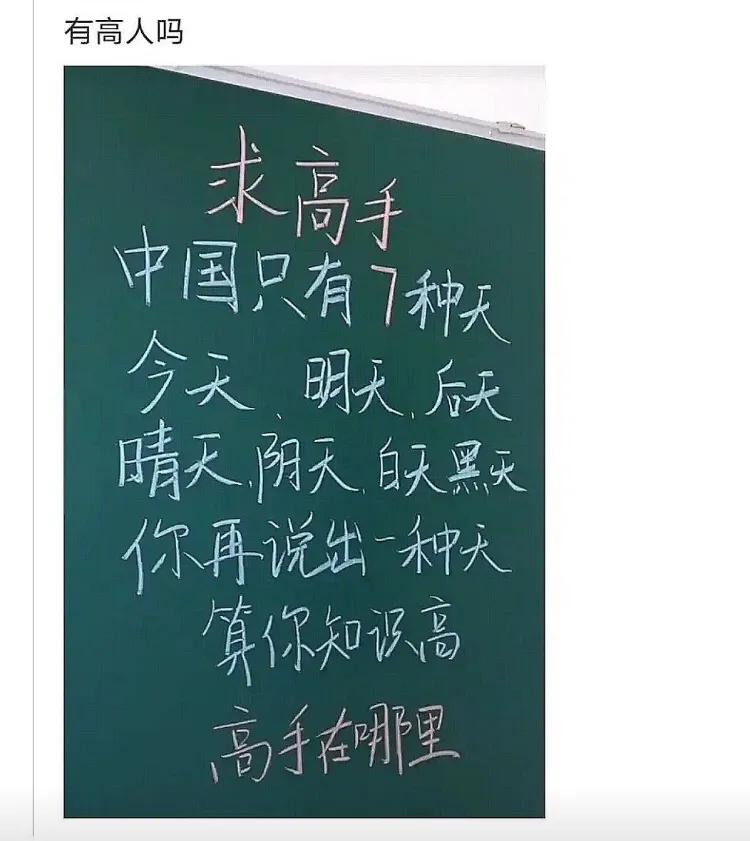 有高人吗
求高手
中国只有7种天
今天、明天、后天
晴天、阴天、白天黑天
你再说出一种天
算你知识高
高手在哪里